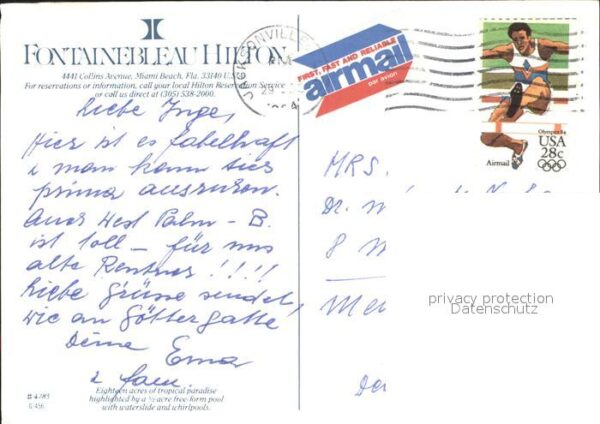 FONTAINEBLEAU HILTON
4441 Collins Avenue, Miami Beach, Fla. 33140 U.S.
For reservations or information, call your local Hilton Reservation Service
or call us direct at (305) 538-2000.
JACKSONVILLE
PM
29
FIRST, FAST AND RELIABLE
airmail
par avion
Olympics 84
USA
28c
Airmail
Liebe Inge,
Hier ist es fabelhaft
u man kann hier
prima ausruhen.
Auch West Palm - B.
ist toll - für uns
alte Rentner !!!!
Liebe Grüsse sendet,
wie an Göttergatte
Deine Erna
u fam.
MRS.
Dr.
8
privacy protection
Datenschutz
# 4283
G 456
Eighteen acres of tropical paradise
highlighted by a ½-acre free-form pool
with waterslide and whirlpools.